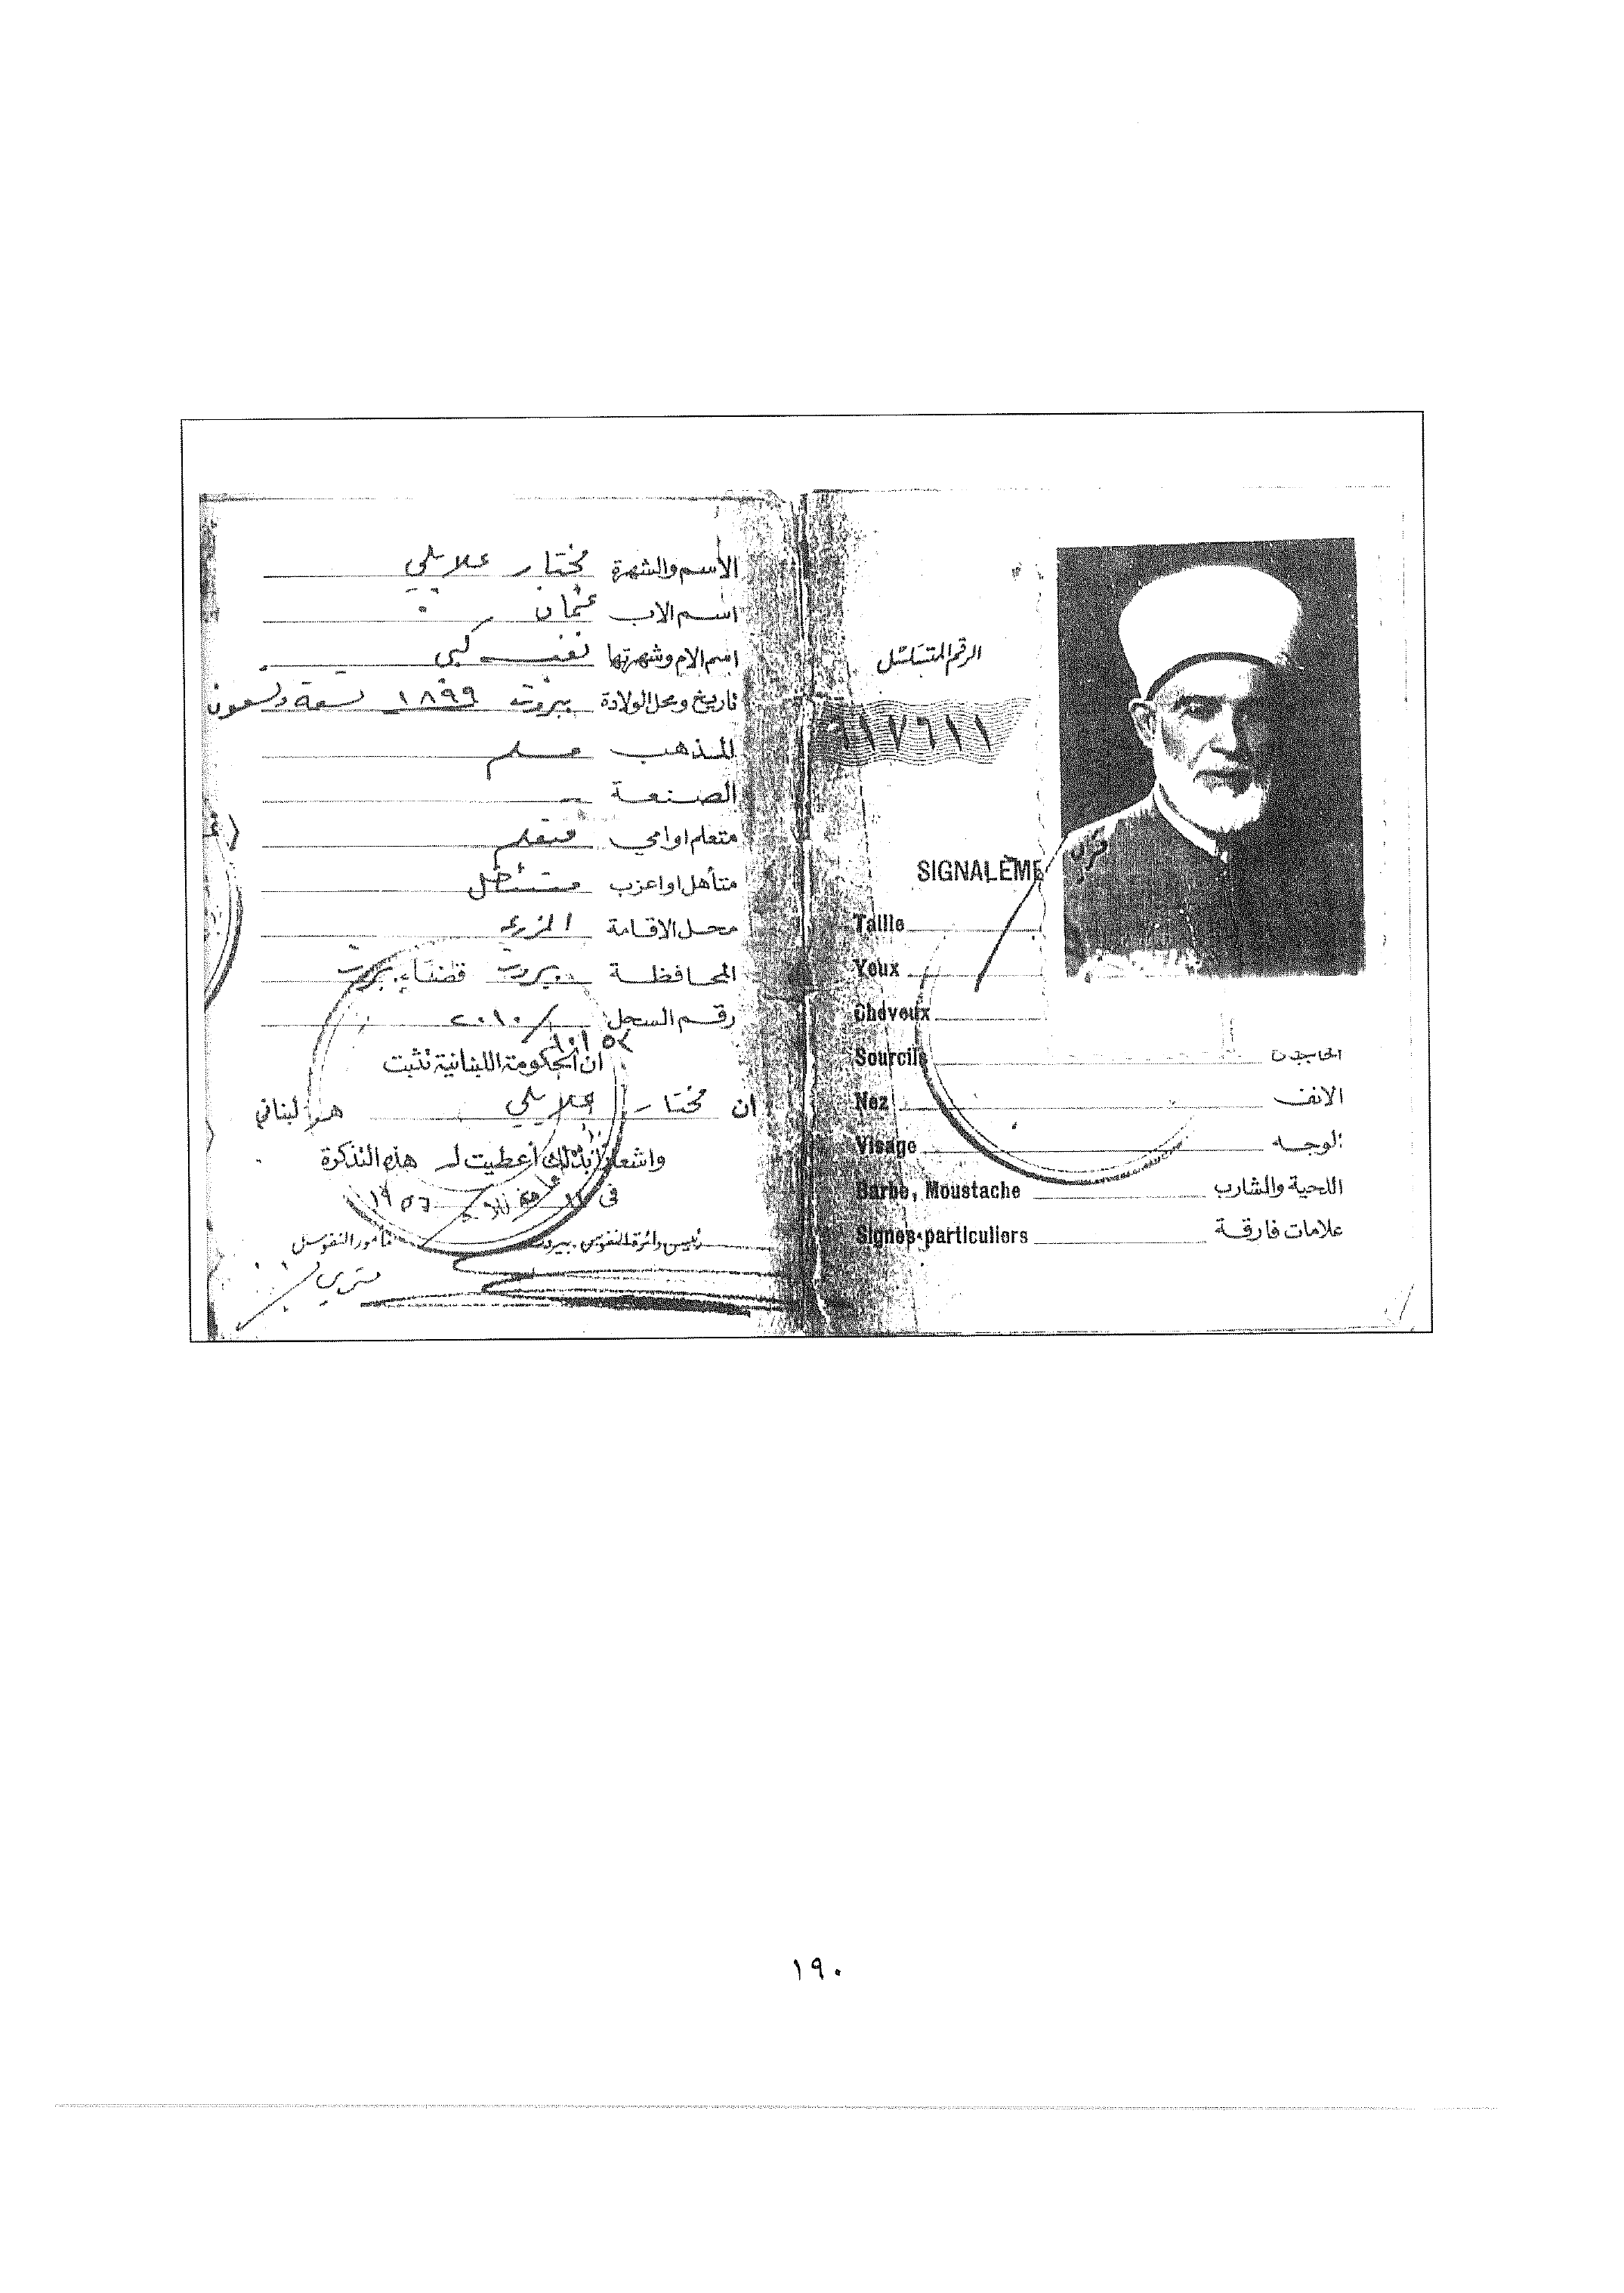 الاسم والشهرة مختار علايلي
اسم الاب عثمان
اسم الام وشهرتها كبي
تاريخ ومحل الولادة بيروت ١٨٩٩ تسعة وتسعون
المذهب مسلم
الصنعة
متعلم او امي متعلم
متأهل او اعزب متأهل
محل الاقامة المزرعة
المحافظة بيروت قضاء بيروت
رقم السجل ٢٠١٠
ان الحكومة اللبنانية تثبت
ان مختار علايلي هو لبناني
واشعارا بذلك أعطيت له هذه التذكرة
في ١٩٥٦
رئيس دائرة النفوس بيروت مأمور النفوس
الرقم المتسلسل
٩١٧٦١١
SIGNALÉME
Taille
Yeux
Cheveux
Sourcils الحاجبان
Nez الانف
Visage الوجه
Barbe, Moustache اللحية والشارب
Signes particuliers علامات فارقة
١٩٠